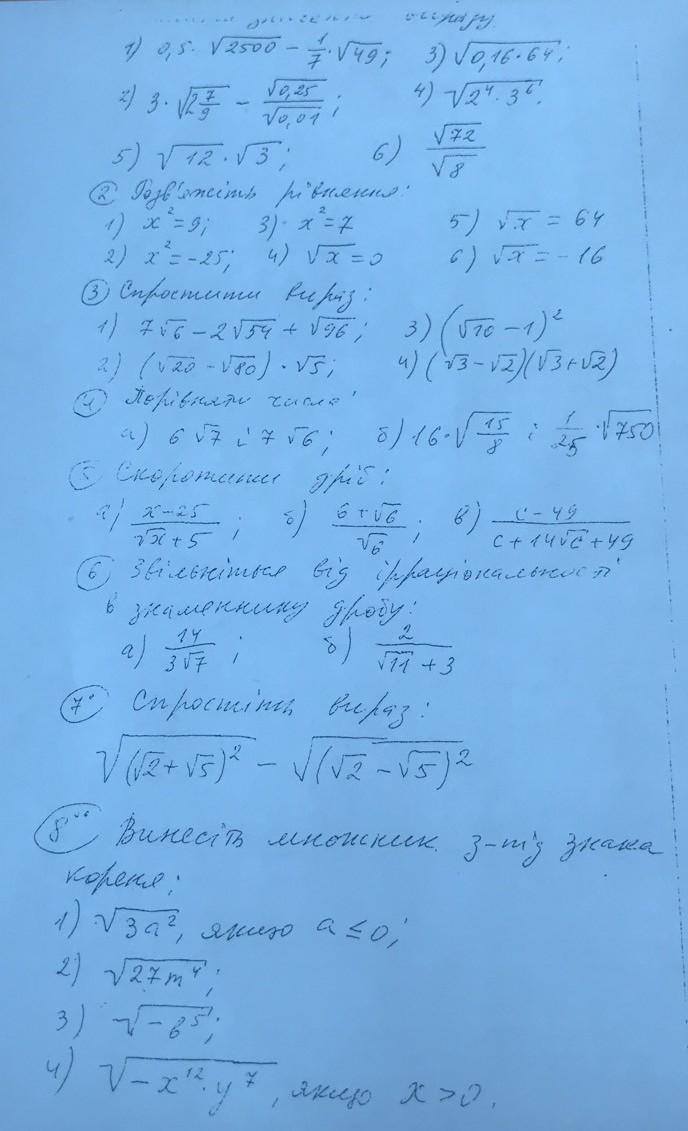 значення виразу
1) 0,5·√2500 − 1/7·√49; 3) √(0,16·64);
2) 3·√(2 7/9) − √0,25/√0,01; 4) √(2⁴·3⁶).
5) √12·√3; 6) √72/√8
② Розв'яжіть рівняння:
1) x²=9; 3) x²=7 5) √x = 64
2) x²=-25; 4) √x=0 6) √x=-16
③ Спростити вираз:
1) 7√6−2√54+√96; 3) (√10−1)²
2) (√20−√80)·√5; 4) (√3−√2)(√3+√2)
④ Порівняти числа:
а) 6√7 і 7√6; б) 16·√(15/8) і 1/25·√750
⑤ Скоротити дріб:
а) (x−25)/(√x+5); б) (6+√6)/√6; в) (c−49)/(c+14√c+49)
⑥ Звільніться від ірраціональності
в знаменнику дробу:
а) 14/(3√7); б) 2/(√11+3)
⑦° Спростіть вираз:
√((√2+√5)²) − √((√2−√5)²)
⑧ Винесіть множник з-під знака
кореня:
1) √(3a²), якщо a≤0;
2) √(27m⁴);
3) √(−b⁵);
4) √(−x¹²·y⁷), якщо x>0.